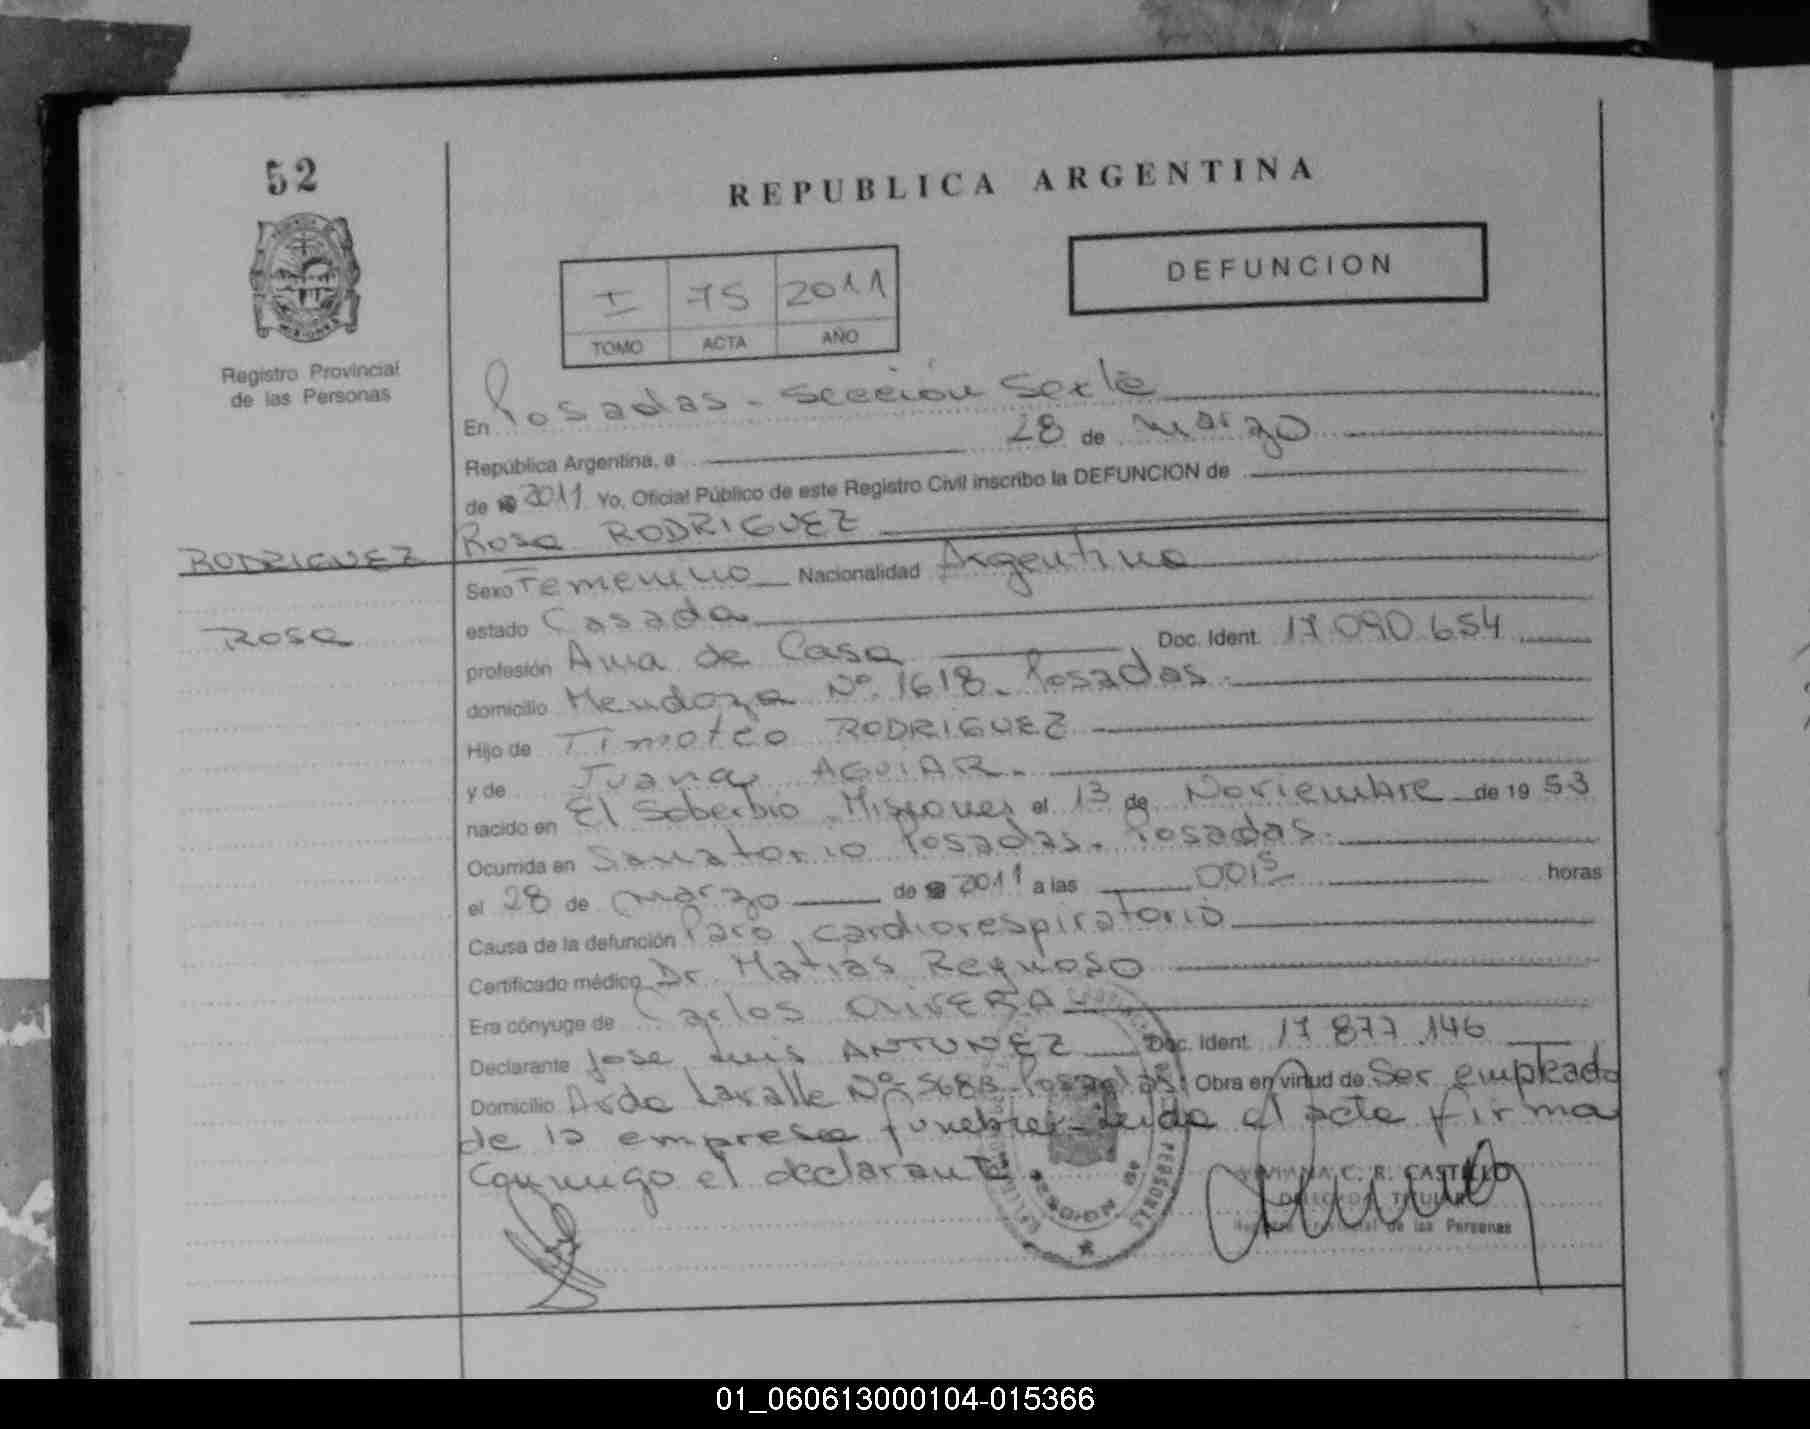 52
REPUBLICA ARGENTINA
DEFUNCION
I 75 2011
TOMO ACTA AÑO
Registro Provincial
de las Personas
En Posadas - Sección Sexta
República Argentina, a 28 de Marzo
de 2011 Yo, Oficial Público de este Registro Civil inscribo la DEFUNCION de
Rosa RODRIGUEZ
RODRIGUEZ
Rosa
Sexo Femenino Nacionalidad Argentina
estado Casada
profesión Ama de Casa Doc. Ident. 17.090.654
domicilio Mendoza Nº 1618 - Posadas.
Hijo de Timoteo RODRIGUEZ
y de Juana AGUIAR.
nacido en El Soberbio - Misiones el 13 de Noviembre de 1953
Ocurrida en Sanatorio Posadas - Posadas.
el 28 de Marzo de 2011 a las 0015 horas
Causa de la defunción Paro cardiorespiratorio
Certificado médico Dr. Matías Reynoso
Era cónyuge de Carlos OLIVERA
Declarante Jose Luis ANTUNEZ Doc. Ident. 17 877.146
Domicilio Avda Lavalle Nº 5688 - Posadas. Obra en virtud de Ser empleado
de la empresa funebre - Leida el acta firma
conmigo el declarante
VIVIANA C. R. CASTILLO
DELEGADA TITULAR
Registro Provincial de las Personas
01_060613000104-015366